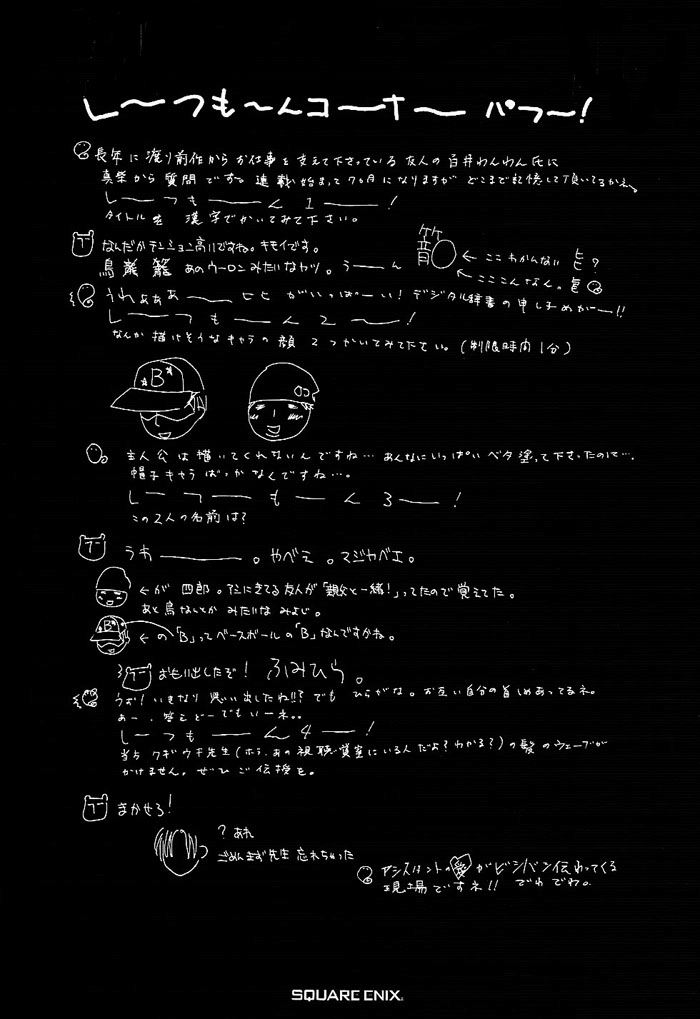 し〜つも〜んコ〜ナ〜 パフ〜!
長年に渡り前作からお仕事を支えて下さっている友人の百井わんわん氏に
真柴から質問です。連載始まって7ヵ月になりますがどこまで記憶して頂いてるかネ。
し〜つも〜ん1〜!
タイトルを漢字でかいてみて下さい。
なんだかテンション高いですね。キモイです。
← ここわかんない ヒ?
あのウーロンみたいなヤツ。う〜ん
← こここんなん。
うわぁぁぁ〜 ヒヒ がいっぱーい! デジタル辞書の申し子めがー!!
し〜つも〜ん2〜!
なんか描けそうなキャラの顔2つかいてみて下さい。(制限時間1分)
B
主人公は描いてくれないんですね… あんなにいっぱいベタ塗って下さったのに…。
帽子キャラばっかなんですね…。
し〜つ〜も〜ん3〜!
この2人の名前は?
うわ〜。やべえ。マジヤベエ。
←が 四郎。アシにきてる友人が「親父と一緒!」ってたので覚えてた。
あと鳥なんとか みたいなみよじ。
B
←の「B」ってベースボールの「B」なんですかね。
おもい出したぞ! ふみひら。
うお! いきなり思い出したね!!? でも ひらがな。お互い自分の首しめあってるネ。
あー、答えどーでもいーネ。。
し〜つも〜ん4〜!
当方 クギウチ先生(ホラ、あの視聴覚室にいる人だよ?わかる?)の髪のウェーブが
かけません。ぜひご伝授を。
まかせろ!
? あれ
ごめんまず先生忘れちゃった
アシスタントの愛がビシバシ伝わってくる
現場ですネ!! でわでわ。
SQUARE ENIX®